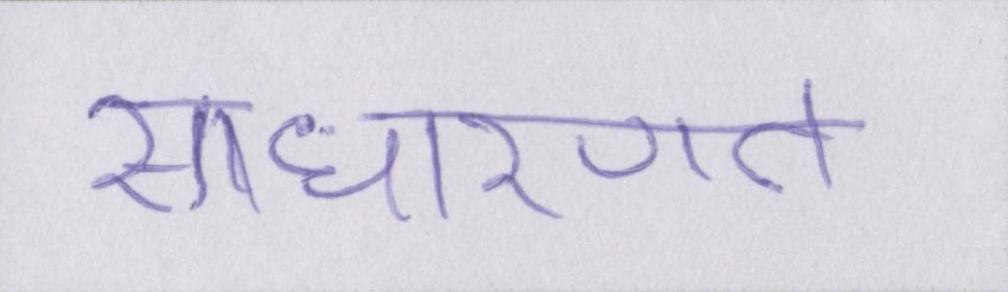 साधारणत